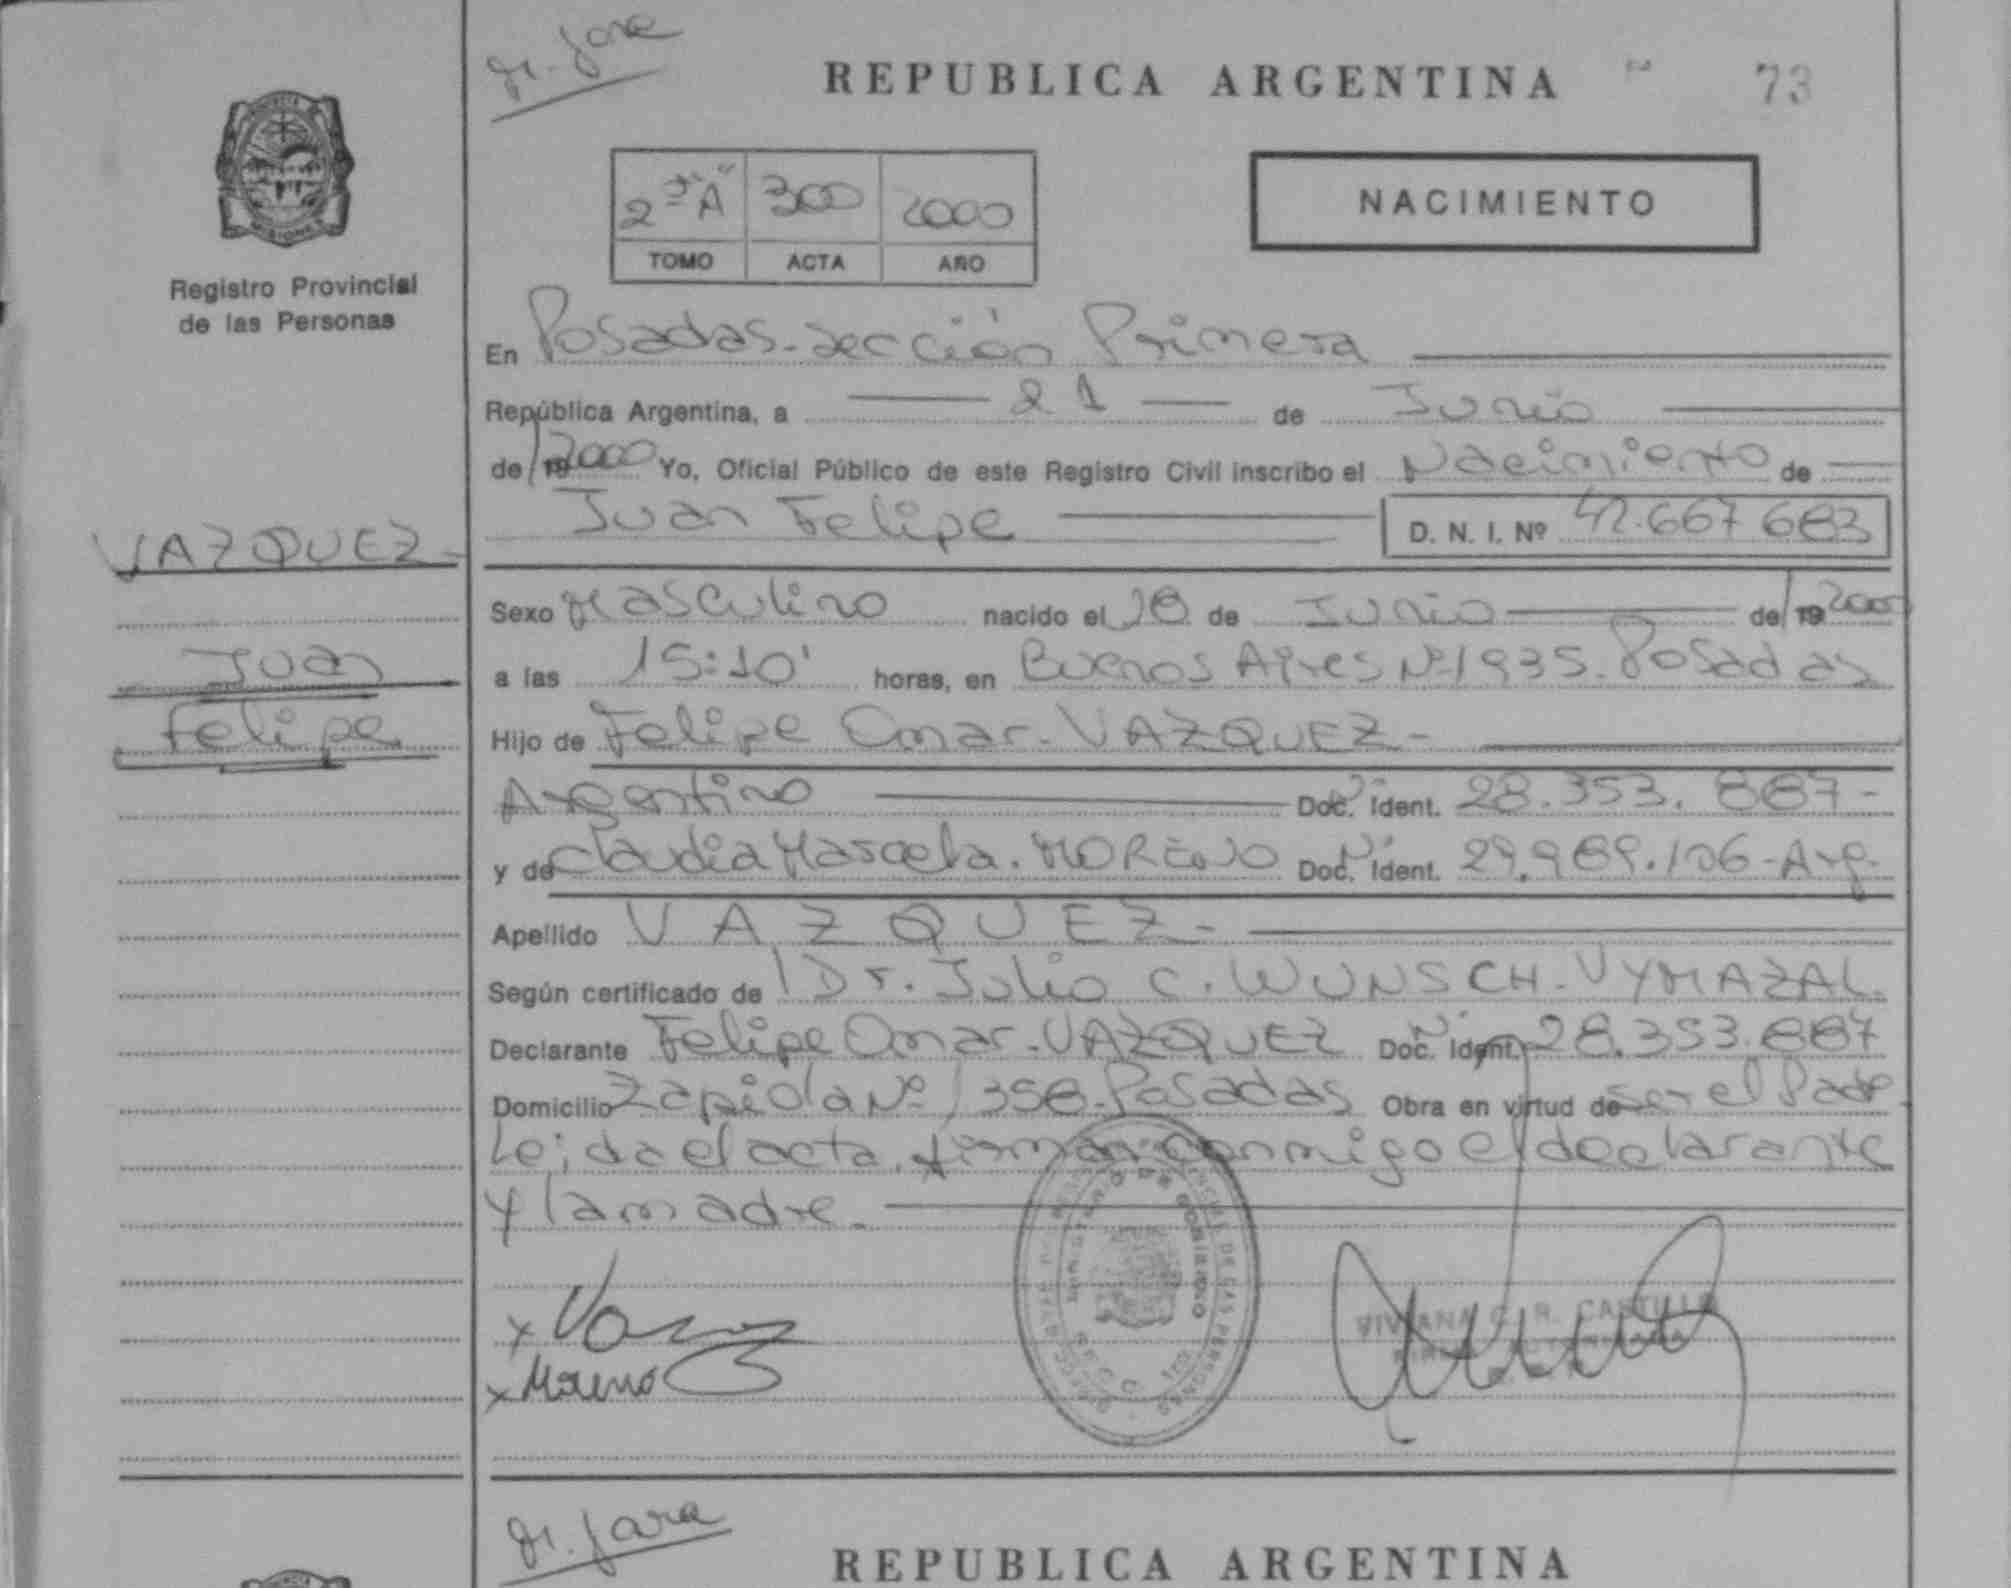 M. Jara
REPUBLICA ARGENTINA
73
2º "A" 300 2000
TOMO ACTA AÑO
NACIMIENTO
Registro Provincial
de las Personas
En Posadas-Sección Primera
República Argentina, a 21 de Junio
de 19 2000 Yo, Oficial Público de este Registro Civil inscribo el Nacimiento de
Juan Felipe D. N. I. Nº 42.667683
VAZQUEZ-
Juan
Felipe
Sexo Masculino nacido el 18 de Junio de 19 2000
a las 15:10' horas, en Buenos Aires Nº 1935. Posadas
Hijo de Felipe Omar-VAZQUEZ-
Argentino Doc. Ident. 28.353.887-
y de Claudia Marcela. MORENO Doc. Ident. 29.989.106-Arg.
Apellido VAZQUEZ-
Según certificado de Dr. Julio C. WUNSCH-VYMAZAL.
Declarante Felipe Omar-VAZQUEZ Doc. Ident. 28.353.887
Domicilio Zapiola Nº 1358-Posadas Obra en virtud de ser el Padre-
Leída el acta, firman conmigo el declarante
y la madre.
x
x Moreno
VIVIANA C. R. CASTILLO
M. Jara
REPUBLICA ARGENTINA